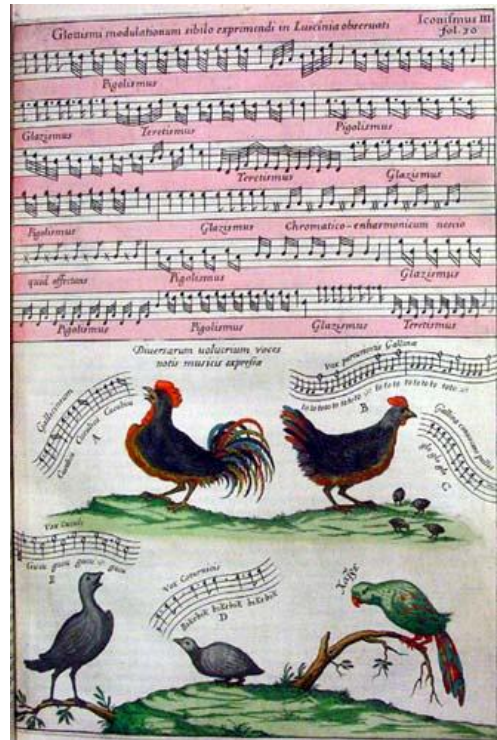 Glottismi modulationum sibilo exprimendi in Luscinia observati
Iconismus III
fol. 30
Pigolismus
Glazismus Teretismus Pigolismus
Teretismus Glazismus
Pigolismus Glazismus Chromatico-enharmonicum nescio
quod affectans Pigolismus Glazismus
Pigolismus Pigolismus Glazismus Teretismus
Diversarum volucrium voces
notis musicis expressa
Gallicinium
Cucul
A
Vox parturientis Gallinæ
to to to to to to
B
Gallina convocans pullos
glo glo glo
C
Vox Cuculi
Gucu gucu gucu gucu
E
Vox Coturnicis
Bikebik bikebik bikebik
D
Χαῖρε